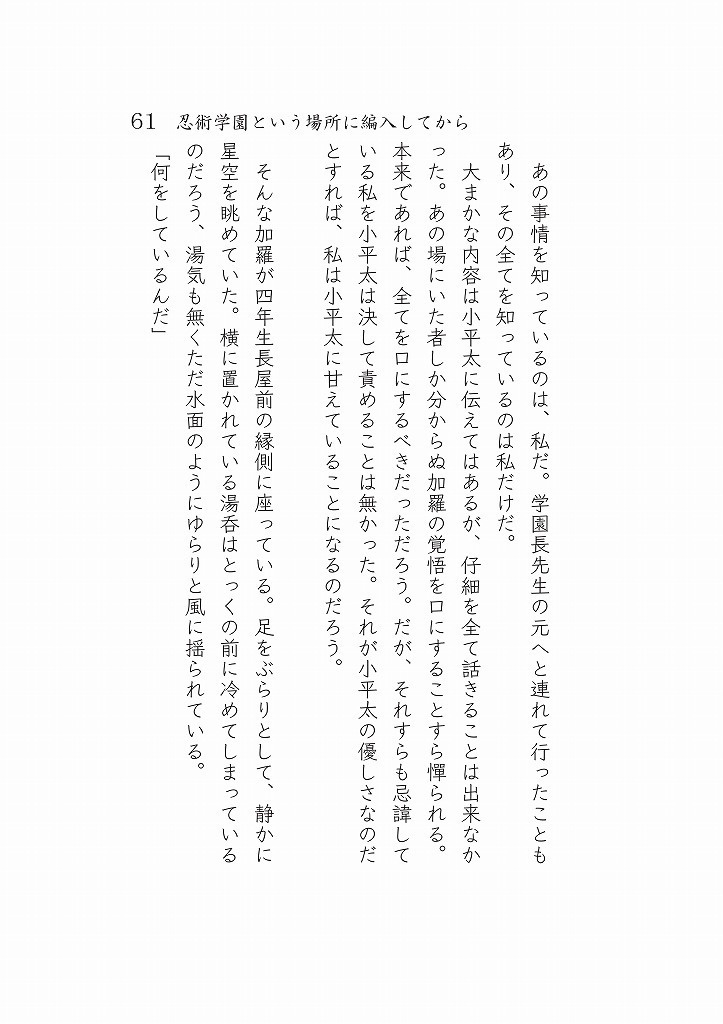 61 忍術学園という場所に編入してから
あの事情を知っているのは、私だ。学園長先生の元へと連れて行ったことも
あり、その全てを知っているのは私だけだ。
大まかな内容は小平太に伝えてはあるが、仔細を全て話きることは出来なか
った。あの場にいた者しか分からぬ加羅の覚悟を口にすることすら憚られる。
本来であれば、全てを口にするべきだっただろう。だが、それすらも忌諱して
いる私を小平太は決して責めることは無かった。それが小平太の優しさなのだ
とすれば、私は小平太に甘えていることになるのだろう。
そんな加羅が四年生長屋前の縁側に座っている。足をぶらりとして、静かに
星空を眺めていた。横に置かれている湯呑はとっくの前に冷めてしまっている
のだろう、湯気も無くただ水面のようにゆらりと風に揺られている。
「何をしているんだ」